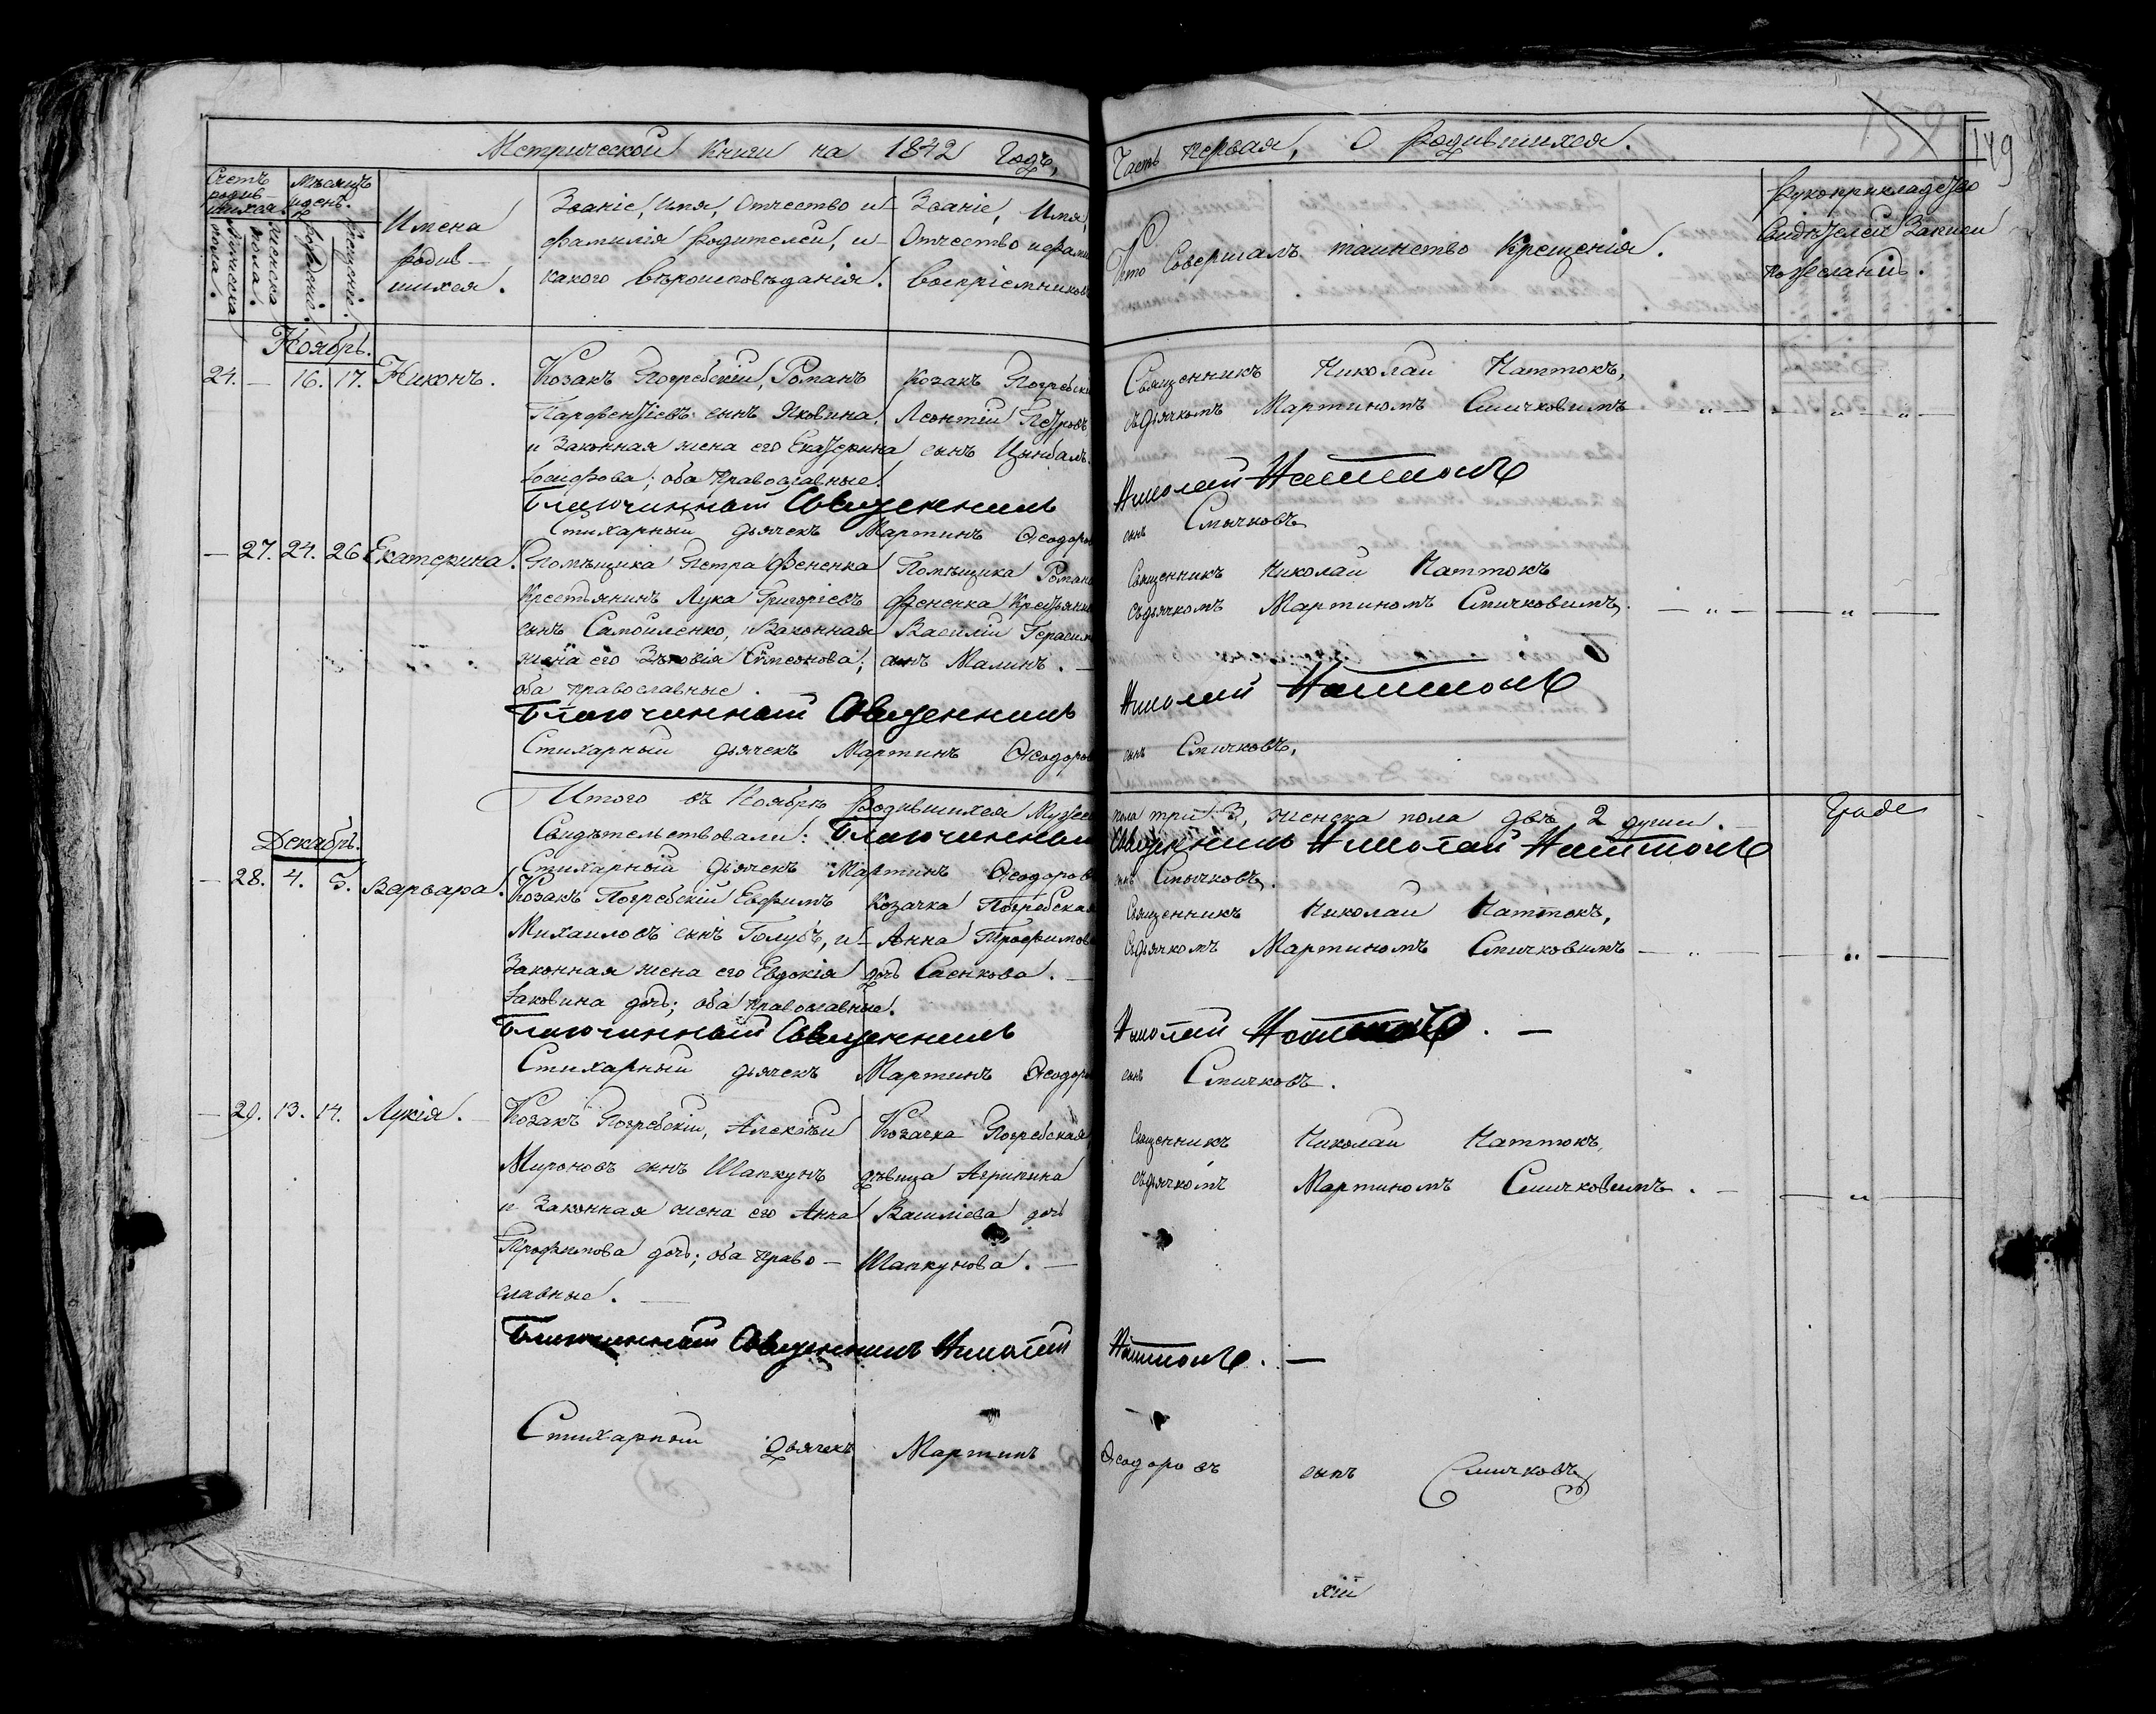 Метрической Книги на 1842 Годъ, Часть первая, О родившихся.
149
Счетъ родив шихся.
Мѣсяцъ и день.
Мужеска пола.
Женска пола.
Рожденіе.
Крещеніе.
Имена родив- шихся.
Званіе, Имя, Отчество и
фамилія родителей, и
какого вѣроисповѣданія.
Званіе, Имя,
Отчество и фами
воспріемниковъ
Кто Совершалъ таинство Крещенія.
Рукоприкладство
Свидѣтелей Записи
по желанію.
Ноябрь.
24. — 16. 17. Никонъ.
Козакъ Погребскій, Романъ
Парфентіевъ сынъ Яковина,
и Законная жена его Екатерина
Іосифова; оба православные.
Козакъ Погребскій
Леонтій Петровъ
сынъ Цымбалъ.
Священникъ Николай Наттокъ,
съ дьячкомъ Мартиномъ Смичковимъ
Благочинный Священникъ Николай Наттокъ
Стихарный дьячекъ Мартинъ Ѳеодоровъ сынъ Смычковъ
— 27. 24. 26 Екатерина.
Помѣщика Петра Фененка
Крестьянинъ Лука Григоріевъ
сынъ Самойленко, и Законная
жена его Симеонова;
оба православные.
Помѣщика Романа
Фененка Крестьянинъ
Василій Герасим
сынъ Малинъ. —
Священникъ Николай Наттокъ
съ дьячкомъ Мартиномъ Смичковимъ.
Благочинный Священникъ Николай Наттокъ
Стихарный дьячекъ Мартинъ Ѳеодоровъ сынъ Смичковъ,
Итого въ Ноябрѣ родившихся Мужеска пола три 3, женска пола двѣ 2 души.
Свидѣтельствовали: Благочинный Священникъ Николай Наттокъ
Стихарный Дьячекъ Мартинъ Ѳеодоровъ сынъ Смычковъ.
Декабрь.
— 28. 4. 5. Варвара.
Козакъ Погребскій Евфимъ
Михаиловъ сынъ Голубъ, и
Законная жена его Евдокія
Іаковина дочь; оба православные.
Козачка Погребская
Анна Трофимова
дочь Саенкова. —
Священникъ Николай Наттокъ,
съ дьячкомъ Мартиномъ Смичковимъ —
Благочинный Священникъ Николай Наттокъ. —
Стихарный дьячекъ Мартинъ Ѳеодоровъ сынъ Смичковъ.
— 29. 13. 14. Лукія.
Козакъ Погребскій, Алексѣй
Мироновъ сынъ Шапкунъ
и Законная жена его Анна
Трофимова дочь; оба право —
славные. —
Козачка Погребская
дѣвица Агрипина
Василіева дочь
Шапкунова. —
Священникъ Николай Наттокъ,
съ дьячкомъ Мартиномъ Смичковимъ. —
Благочинный Священникъ Николай Наттокъ. —
Стихарный Дьячекъ Мартинъ Ѳеодоровъ сынъ Смичковъ
xiii